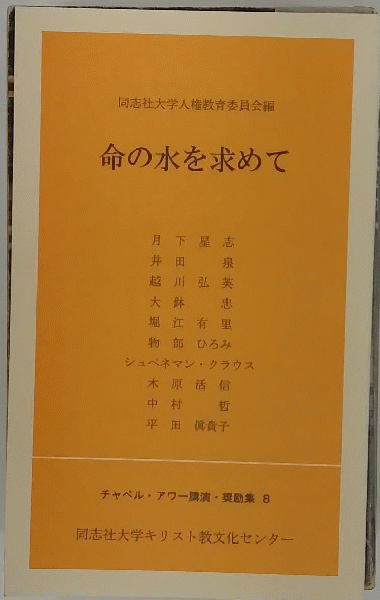 同志社大学人権教育委員会編
命の水を求めて
月下星志
井田泉
越川弘英
大鉢忠
堀江有里
物部ひろみ
シュペネマン・クラウス
木原活信
中村哲
平田眞貴子
チャペル・アワー講演・奨励集 8
同志社大学キリスト教文化センター